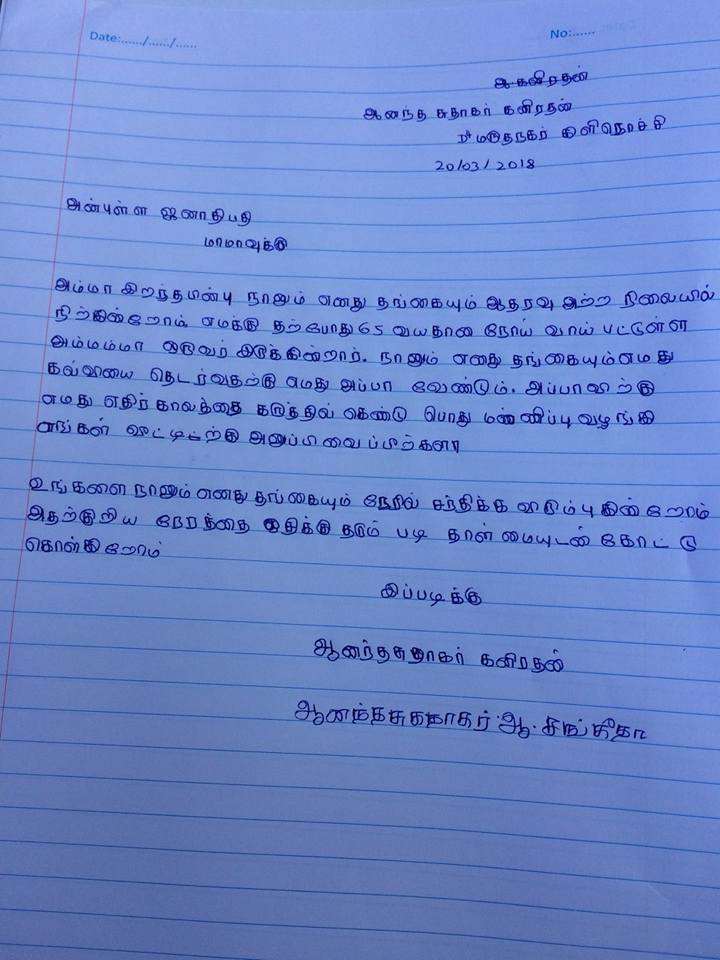 Date:....../....../......
No:......
ஆ கனிரதன்
ஆனந்த சுதாகர் கனிரதன்
மருதநகர் கிளிநொச்சி
20/03/2018
அன்புள்ள ஜனாதிபதி
மாமாவுக்கு
அம்மா இறந்தபின்பு நானும் எனது தங்கையும் ஆதரவு அற்ற நிலையில்
நிற்கின்றோம். எமக்கு தற்போது 65 வயதான நோய் வாய் பட்டுள்ள
அம்மம்மா ஒருவர் இருக்கின்றார். நானும் எனது தங்கையும் எமது
கல்வியை தெடர்வதற்கு எமது அப்பா வேண்டும். அப்பாவிற்கு
எமது எதிர்காலத்தை கருத்தில் கெண்டு பொது மன்னிப்பு வழங்கி
எங்கள் அனுப்பி வைப்பீர்களா
உங்களை நானும் எனது தங்கையும் நேரில் சந்திக்க விரும்புகின்றோம்
அதற்குறிய நேரத்தை ஒதிக்கு தரும் படி தாள்மையுடன் கோட்டு
கொள்கிறோம்
இப்படிக்கு
ஆனந்தசுதாகர் கனிரதன்
ஆனந்தசுதாகர் ஆ. சங்கீதா